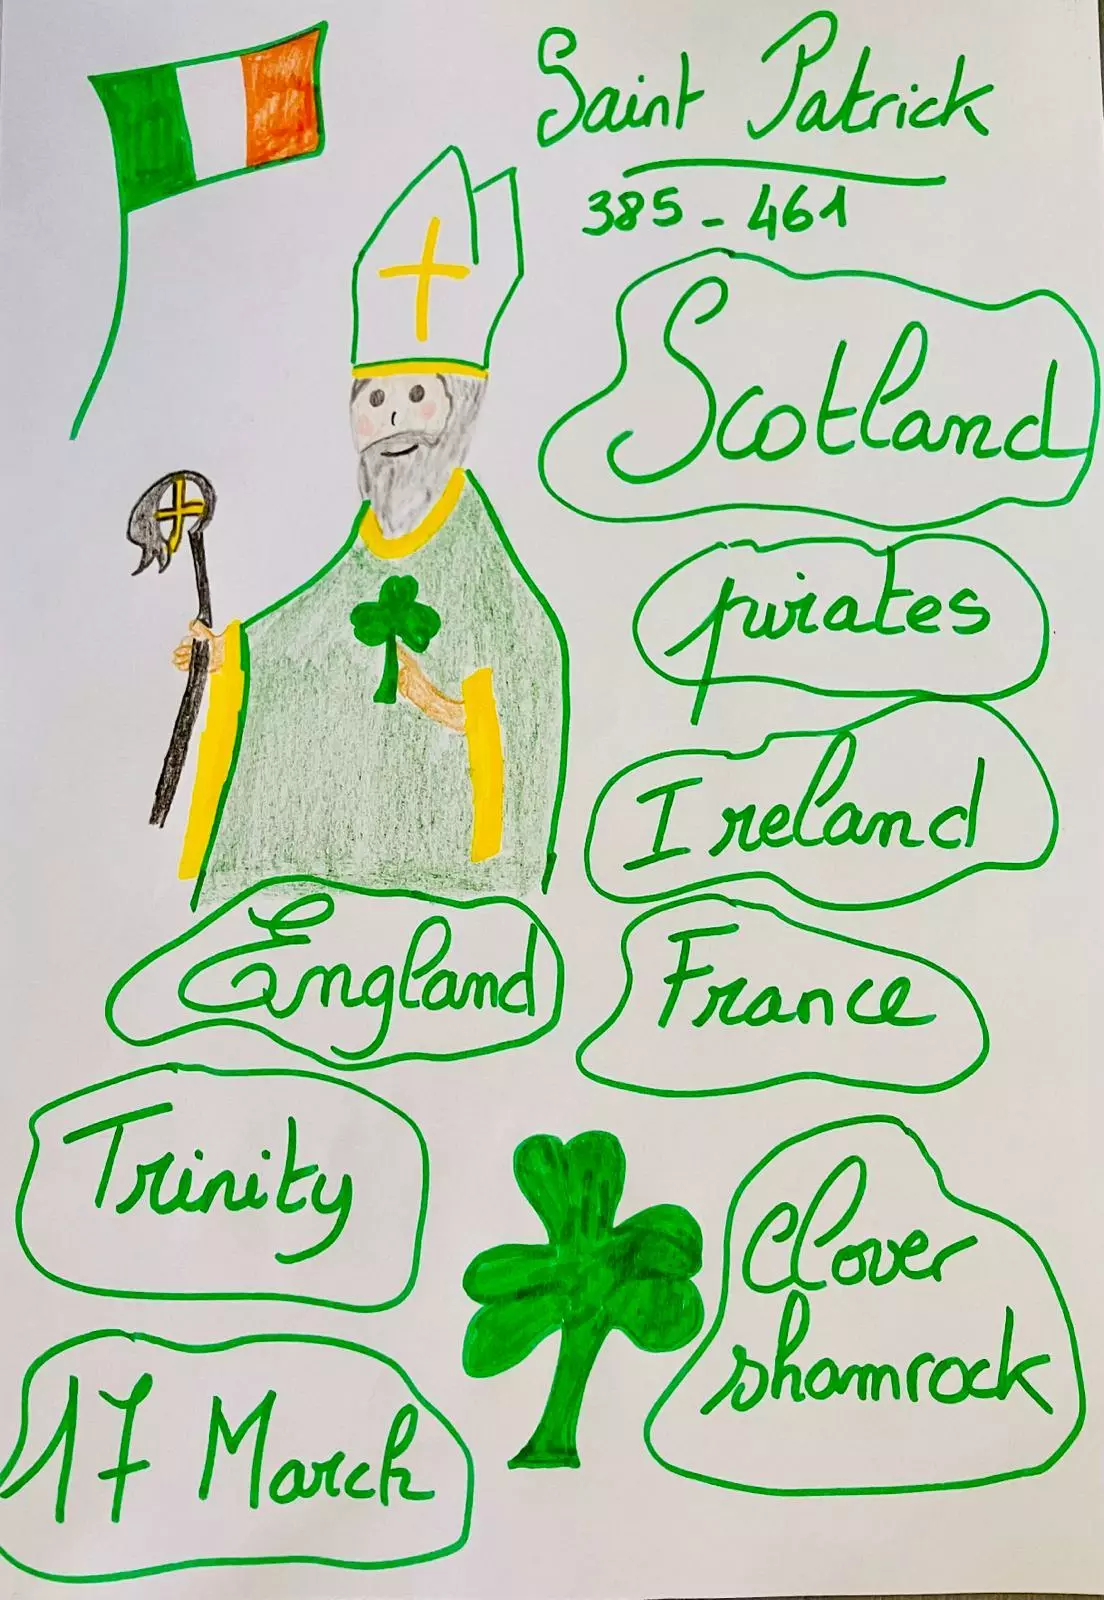 Saint Patrick
385 - 461
Scotland
pirates
Ireland
England
France
Trinity
Clover
shamrock
17 March